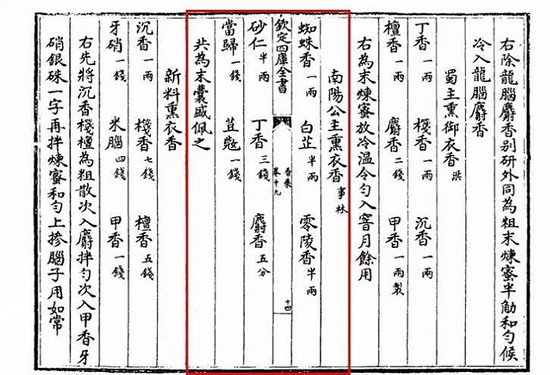 右除龍腦麝香別研外同為粗末煉蜜半觔和勻候
冷入龍腦麝香
蜀主熏御衣香 洪
丁香一兩 棧香一兩 沉香一兩
檀香一兩 麝香二錢 甲香一兩製
右為末煉蜜放冷温令勻入窨月餘用
南陽公主熏衣香 事林
蜘蛛香一兩 白芷半兩 零陵香半兩
欽定四庫全書 香乘 卷十九 十四
砂仁半兩 丁香三錢 麝香五分
當歸一錢 荳蔻一錢
共為末囊盛佩之
新料熏衣香
沉香一兩 棧香七錢 檀香五錢
牙硝一錢 米腦四錢 甲香一錢
右先將沉香棧檀為粗散次入麝拌勻次入甲香牙
硝銀硃一字再拌煉蜜和勻上摻腦子用如常